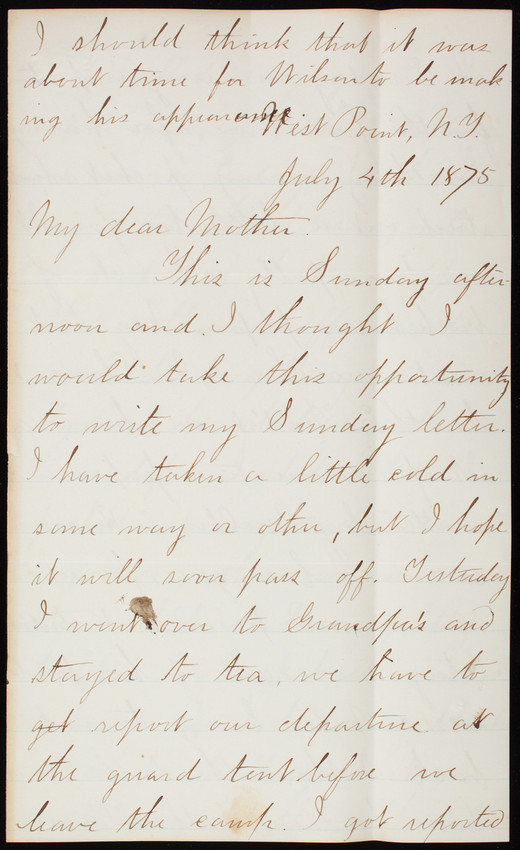 I should think that it was
about time for Wilson to be mak-
ing his appearance
West Point, N.Y.
July 4th 1875
My dear Mother.
This is Sunday after-
noon and I thought I
would take this opportunity
to write my Sunday letter.
I have taken a little cold in
some way or other, but I hope
it will soon pass off. Yesterday
I went over to Grandpa's and
stayed to tea, we have to
get report our departure at
the guard tent before we
leave the camp. I got reported